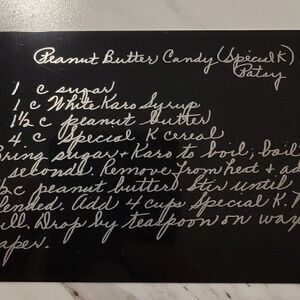 Peanut Butter Candy (Special K)
Patsy
1 c sugar
1 c White Karo Syrup
1½ c peanut butter
4 c Special K cereal
ring sugar + Karo to boil; boil
seconds. Remove from heat + ad
½ c peanut butter. Stir until
lended. Add 4 cups Special K.
ull. Drop by teaspoon on wax
aper.